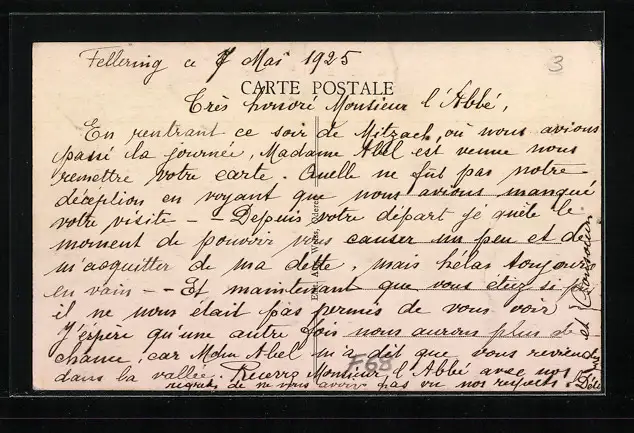 Fellering ce 7 Mai 1925
3
CARTE POSTALE
Très honoré Monsieur l'Abbé,
En rentrant ce soir de Mitzach, où nous avions
passé la journée, Madame Abel est venue nous
remettre votre carte. Quelle ne fut pas notre
déception en voyant que nous avions manqué
votre visite - - Depuis votre départ je guète le
moment de pouvoir vous causer un peu et de
m'acquitter de ma dette, mais hélas toujours
en vain - - Et maintenant que vous étiez si près
il ne nous était pas permis de vous voir
J'éspère qu'une autre fois nous aurons plus de
chance, car Mdm Abel m'a dit que vous reviendrez
dans la vallée. Recevez Monsieur l'Abbé avec nos
regrets, de ne vous avoir pas vu nos respects.
F68